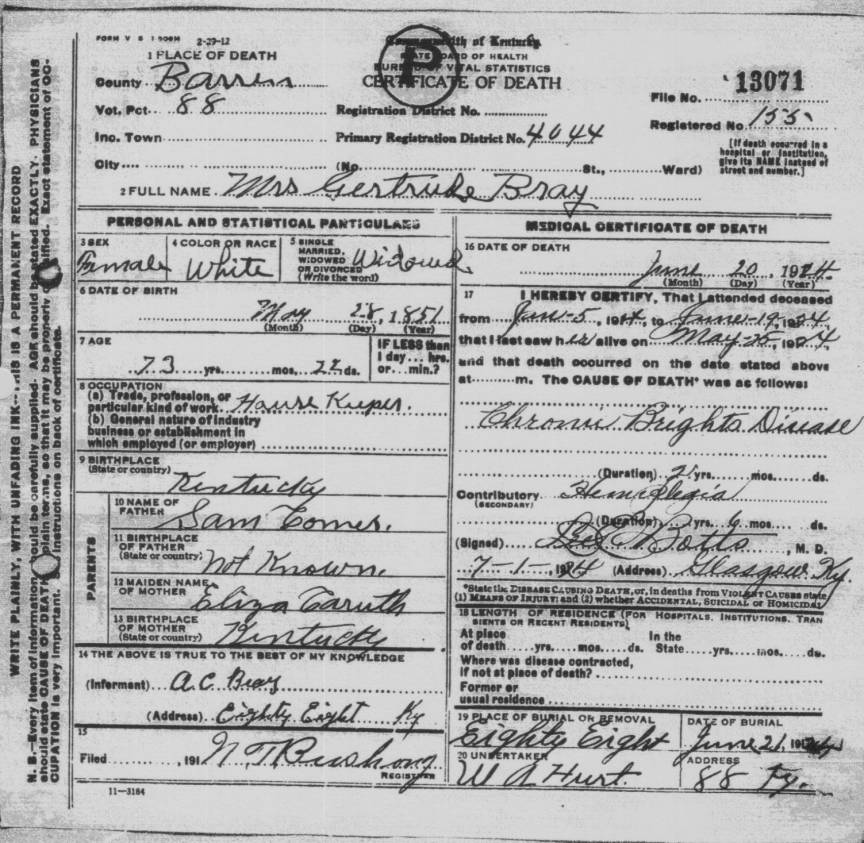 FORM V S 1 2-27-12
Commonwealth of Kentucky
STATE BOARD OF HEALTH
BUREAU OF VITAL STATISTICS
CERTIFICATE OF DEATH
P
1 PLACE OF DEATH
County Barren
Vot. Pct. 88
Inc. Town
City
Registration District No.
Primary Registration District No. 4044
(No. St., Ward)
File No. 13071
Registered No. 155
[If death occurred in a
hospital or institution,
give its NAME instead of
street and number.]
2 FULL NAME Mrs Gertrude Bray
PERSONAL AND STATISTICAL PARTICULARS
3 SEX
Female
4 COLOR OR RACE
White
5 SINGLE
MARRIED,
WIDOWED
OR DIVORCED
(Write the word)
Widowed
6 DATE OF BIRTH
May 28, 1851
(Month) (Day) (Year)
7 AGE
73 yrs. mos. 22 ds.
IF LESS than
1 day... hrs.
or... min.?
8 OCCUPATION
(a) Trade, profession, or
particular kind of work. House Keeper.
(b) General nature of industry
business or establishment in
which employed (or employer)
9 BIRTHPLACE
(State or country)
Kentucky
PARENTS
10 NAME OF
FATHER
Sam Comer.
11 BIRTHPLACE
OF FATHER
(State or country)
Not Known.
12 MAIDEN NAME
OF MOTHER
Eliza Taruth
13 BIRTHPLACE
OF MOTHER
(State or country)
Kentucky
14 THE ABOVE IS TRUE TO THE BEST OF MY KNOWLEDGE
(Informant) A.C. Bray
(Address) Eighty Eight Ky
15
Filed , 191 N T Bushong
REGISTRAR
11-3184
MEDICAL CERTIFICATE OF DEATH
16 DATE OF DEATH
June 20, 1924.
(Month) (Day) (Year)
17 I HEREBY CERTIFY, That I attended deceased
from Jan-5, 1924, to June-19, 1924
that I last saw her alive on May-25, 1924
and that death occurred on the date stated above
at m. The CAUSE OF DEATH* was as follows:
Chronic Brights Disease
(Duration) 2 yrs. mos. ds.
Contributory Hemiplegia
(SECONDARY)
(Duration) yrs. 6 mos. ds.
(Signed) Botts, M. D.
7-1-, 1924 (Address) Glasgow Ky.
*State the DISEASE CAUSING DEATH, or, in deaths from VIOLENT CAUSES state
(1) MEANS OF INJURY: and (2) whether ACCIDENTAL, SUICIDAL or HOMICIDAL
18 LENGTH OF RESIDENCE (FOR HOSPITALS, INSTITUTIONS, TRAN
SIENTS OR RECENT RESIDENTS)
At place
of death yrs. mos. ds.
In the
State yrs. mos. ds.
Where was disease contracted,
if not at place of death?
Former or
usual residence
19 PLACE OF BURIAL OR REMOVAL
Eighty Eight
DATE OF BURIAL
June 21 192
20 UNDERTAKER
W A Hurt.
ADDRESS
88 Ky.
WRITE PLAINLY, WITH UNFADING INK--THIS IS A PERMANENT RECORD
N. B.--Every item of information should be carefully supplied. AGE should be stated EXACTLY. PHYSICIANS
should state CAUSE OF DEATH in plain terms, so that it may be properly classified. Exact statement of OC-
CUPATION is very important. See instructions on back of certificate.